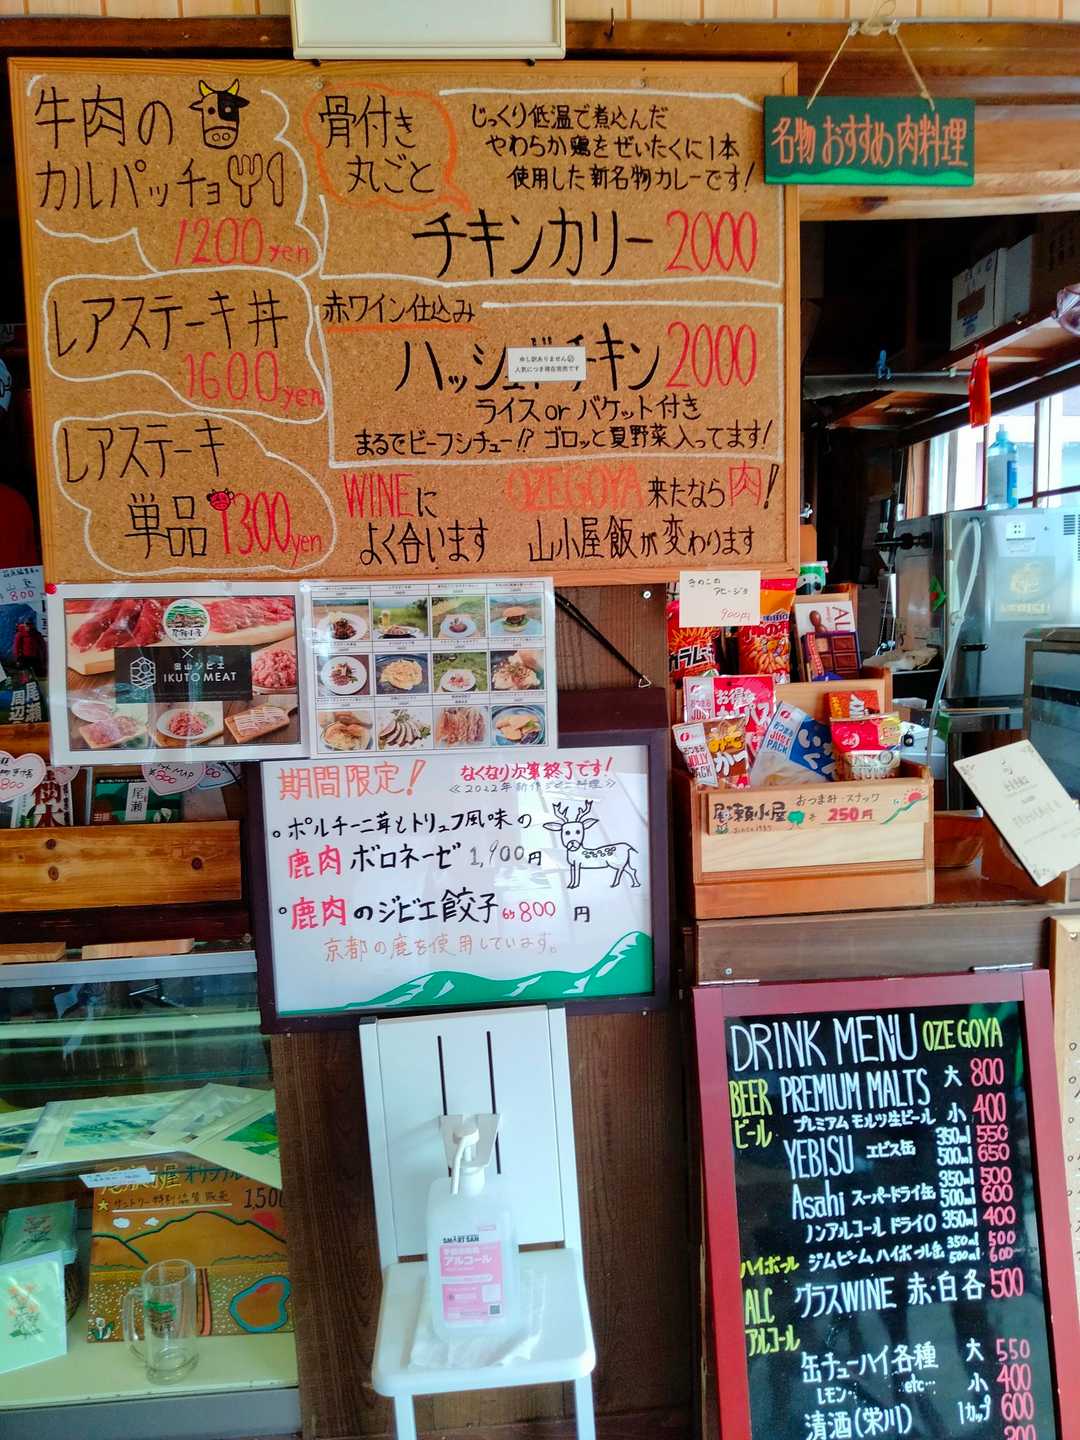 名物 おすすめ 肉料理
牛肉の
カルパッチョ
1200yen
レアステーキ丼
1600yen
レアステーキ
単品 1300yen
骨付き
丸ごと
じっくり低温で煮込んだ
やわらか鶏をぜいたくに1本
使用した新名物カレーです!
チキンカリー 2000
赤ワイン仕込み
ハッシュドチキン 2000
申し訳ありません
人気につき現在完売です
ライス or バケット付き
まるでビーフシチュー!? ゴロッと夏野菜入ってます!
WINEに
よく合います
OZEGOYA 来たなら 肉!
山小屋飯が変わります
×
IKUTO MEAT
きのこの
アヒージョ
900円
おつまみ・スナック
尾瀬小屋 各 250円
since 1957
期間限定!
なくなり次第終了です!
≪2022年新作ジビエ料理≫
ポルチーニ茸とトリュフ風味の
鹿肉 ボロネーゼ 1,900円
鹿肉のジビエ餃子 6ケ 800 円
京都の鹿を使用しています。
DRINK MENU OZEGOYA
BEER
ビール
PREMIUM MALTS 大 800
プレミアム モルツ生ビール 小 400
YEBISU エビス缶 350ml 550
500ml 650
Asahi スーパードライ缶 350ml 500
500ml 600
ノンアルコール ドライ0 350ml 400
ハイボール ジムビーム ハイボール缶 350ml 500
500ml 600
ALC
アルコール
グラスWINE 赤・白 各 500
缶チューハイ各種 大 550
レモン… etc… 小 400
清酒(栄川) 1カップ 600
300
尾瀬小屋 オリジナル
サントリー特別協賛販売 1,500
SMART SAN
アルコール
尾瀬